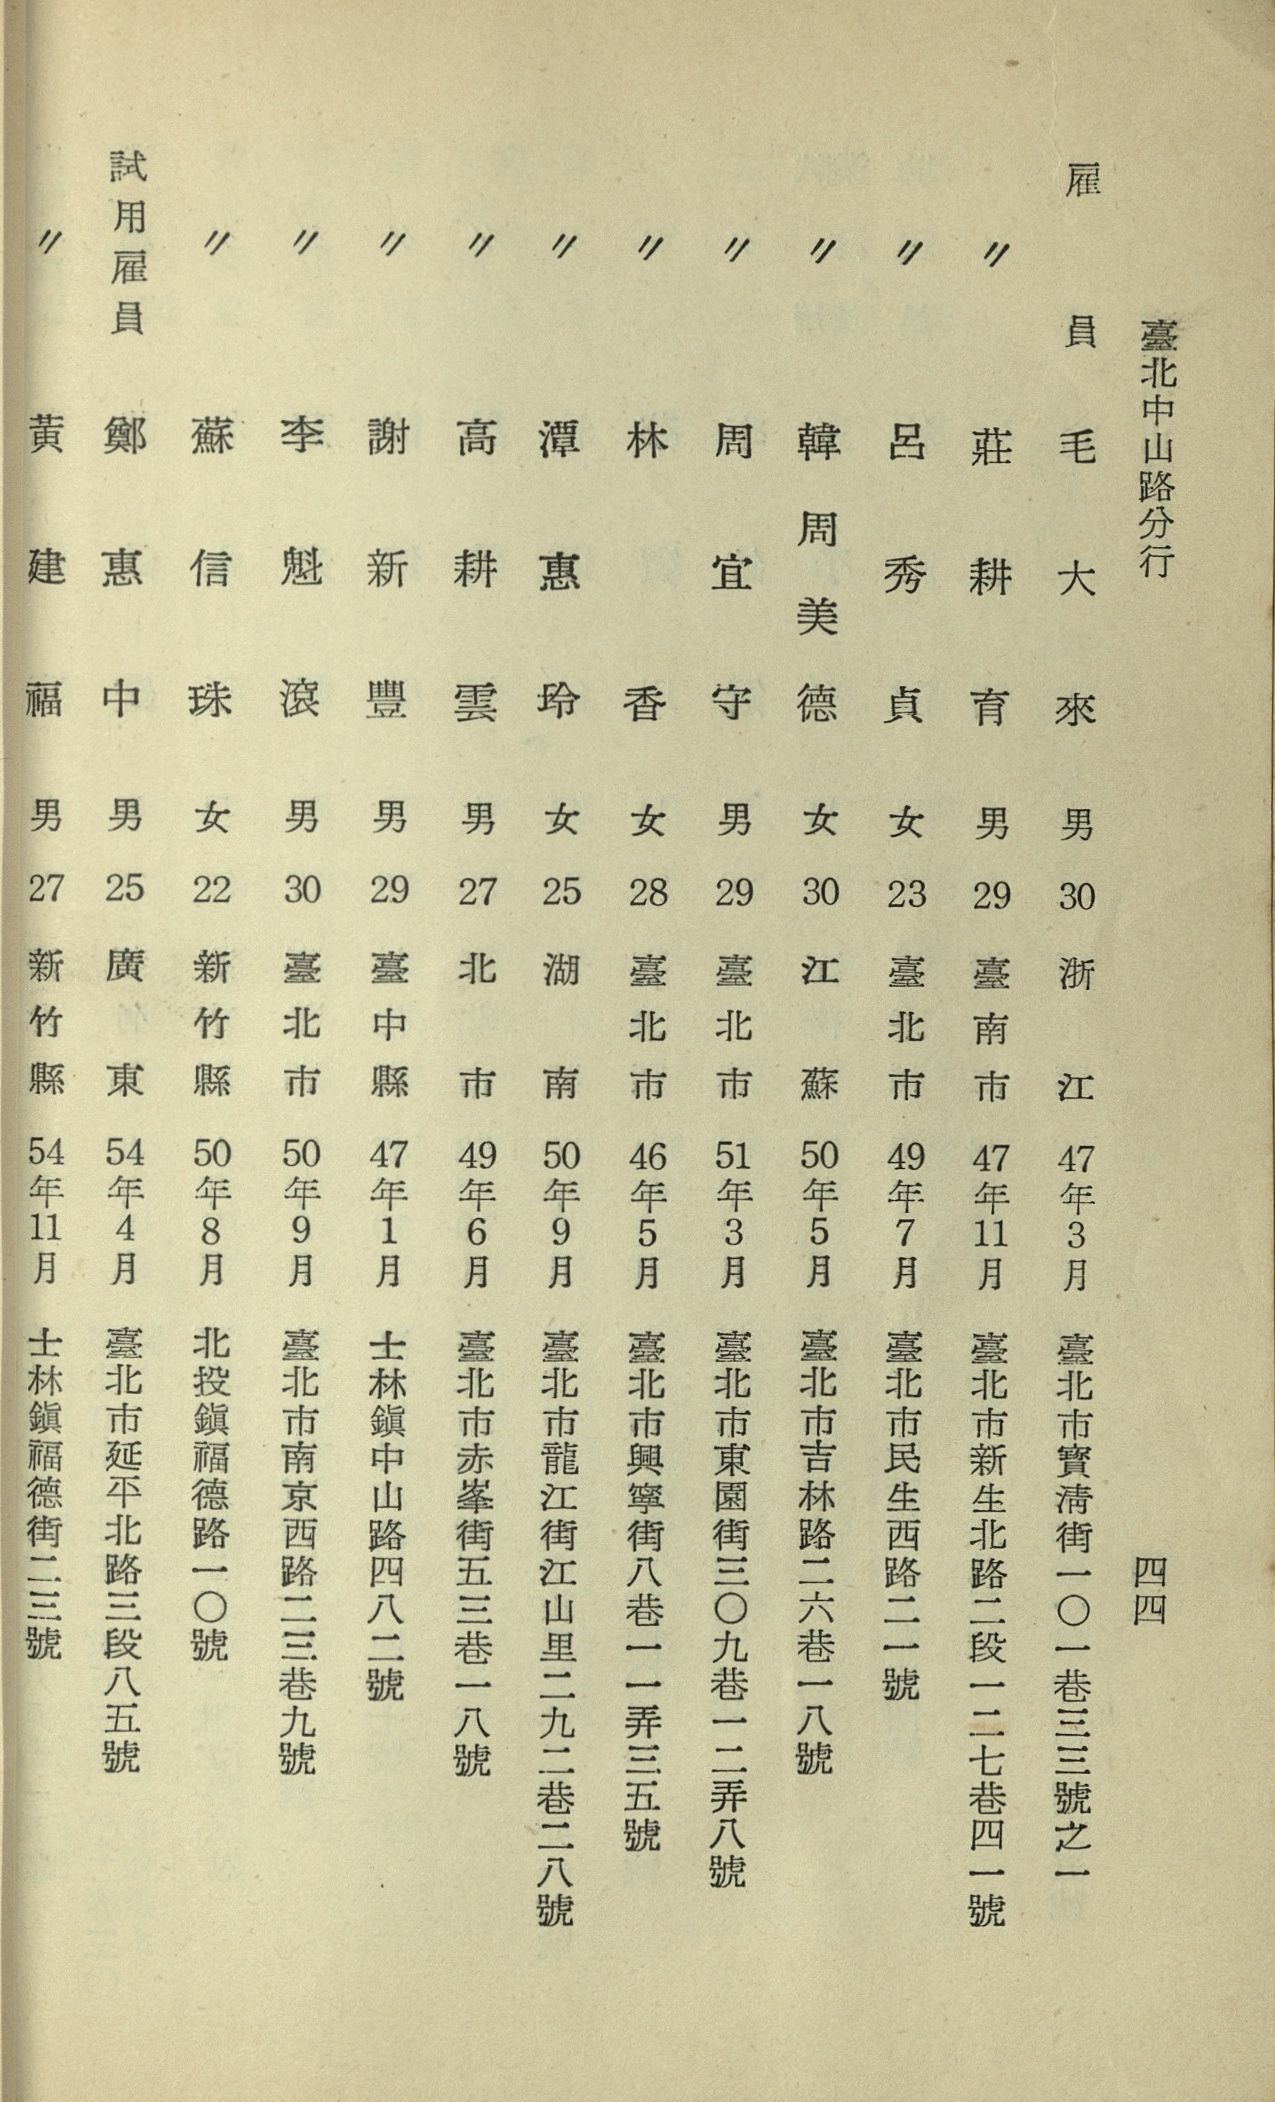 臺北中山路分行
四四
雇員 毛大來 男 30 浙江 47年3月 臺北市寶清街一〇一巷三三號之一
〃 莊耕育 男 29 臺南市 47年11月 臺北市新生北路二段一二七巷四一號
〃 呂秀貞 女 23 臺北市 49年7月 臺北市民生西路二一號
〃 韓周美德 女 30 江蘇 50年5月 臺北市吉林路二六巷一八號
〃 周宜守 男 29 臺北市 51年3月 臺北市東園街三〇九巷一二弄八號
〃 林香 女 28 臺北市 46年5月 臺北市興寧街八巷一一弄三五號
〃 潭惠玲 女 25 湖南 50年9月 臺北市龍江街江山里二九二巷二八號
〃 高耕雲 男 27 北市 49年6月 臺北市赤峯街五三巷一八號
〃 謝新豐 男 29 臺中縣 47年1月 士林鎭中山路四八二號
〃 李魁滾 男 30 臺北市 50年9月 臺北市南京西路二三巷九號
〃 蘇信珠 女 22 新竹縣 50年8月 北投鎭福德路一〇號
試用雇員 鄭惠中 男 25 廣東 54年4月 臺北市延平北路三段八五號
〃 黃建福 男 27 新竹縣 54年11月 士林鎭福德街二三號